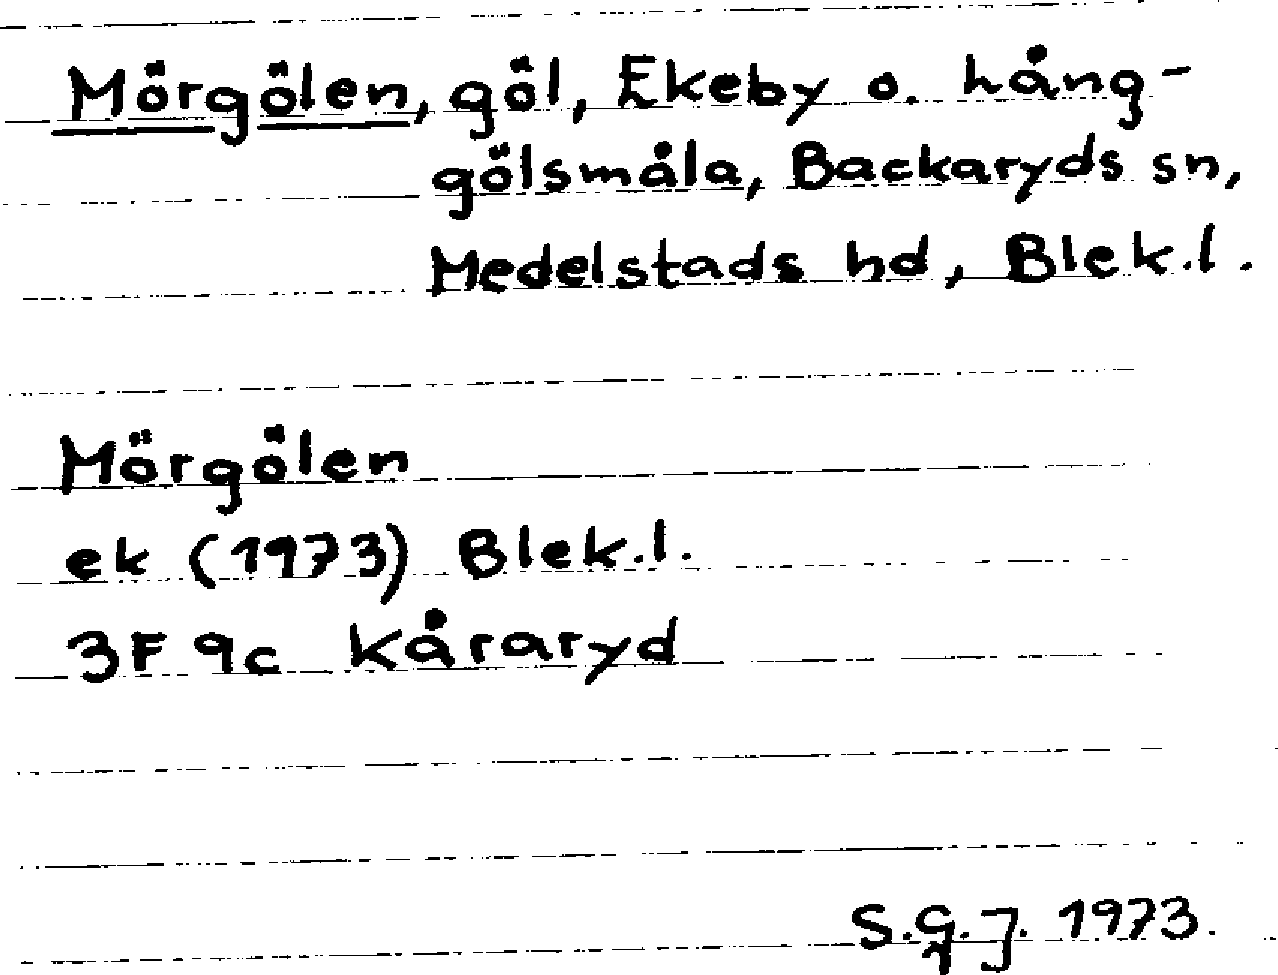 Mörgölen, göl, Ekeby o. hång-
gölsmåla, Backaryds sn,
Medelstads hd, Blek.l.
Mörgölen
ek (1973) Blek.l.
3F 9c Kåraryd
S.G.J. 1973.